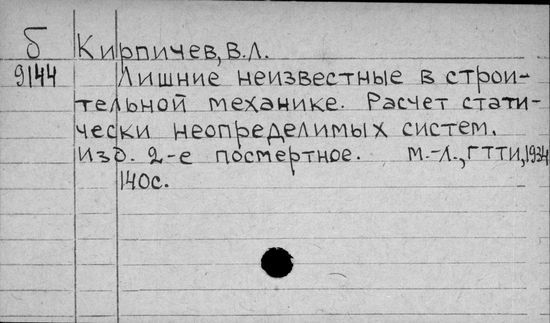 Б Кирпичев, В.Л.
9144 Лишние неизвестные в строи-
тельной механике. Расчет стати-
чески неопределимых систем.
Изд. 2-е посмертное. М.-Л., ГТТИ, 1934
140с.